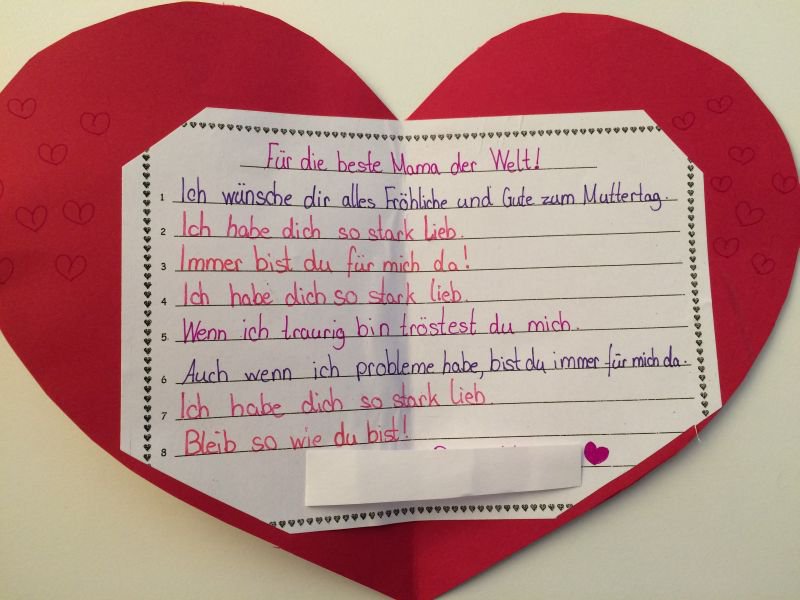 Für die beste Mama der Welt!
1 Ich wünsche dir alles Fröhliche und Gute zum Muttertag.
2 Ich habe dich so stark lieb.
3 Immer bist du für mich da!
4 Ich habe dich so stark lieb.
5 Wenn ich traurig bin tröstest du mich.
6 Auch wenn ich probleme habe, bist du immer für mich da.
7 Ich habe dich so stark lieb.
8 Bleib so wie du bist!